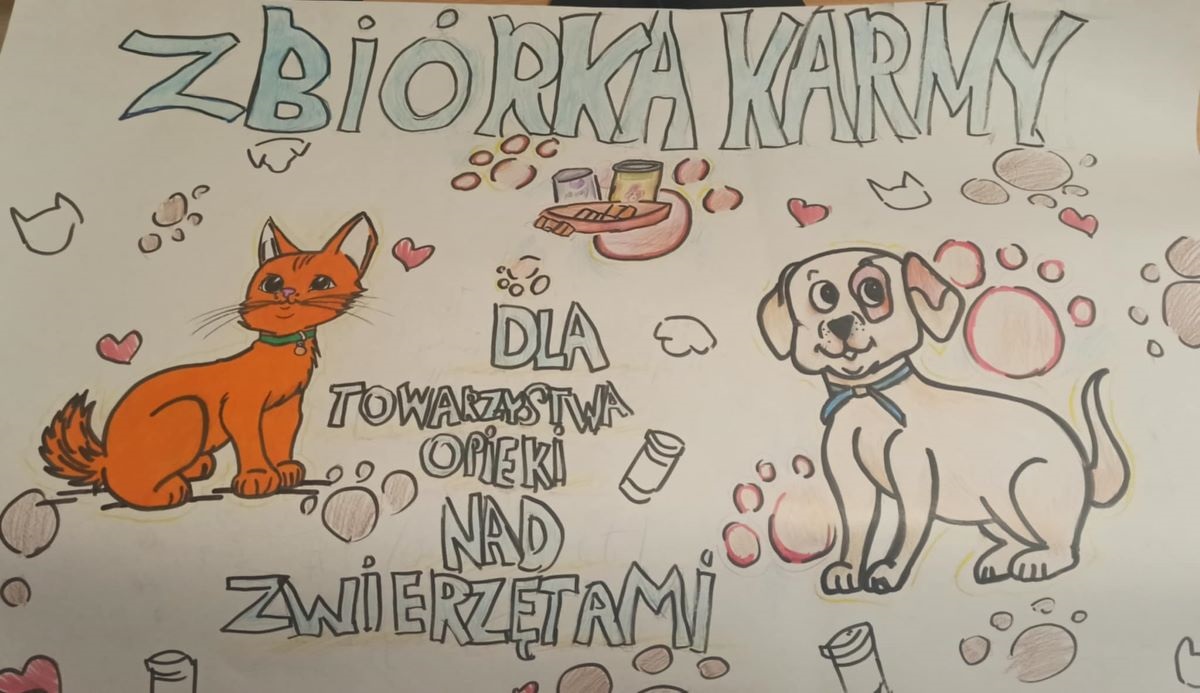 ZBiÓRKA KARMY
DLA
TOWARZYSTWA
OPiEKi
NAD
ZWiERZĘTAMi